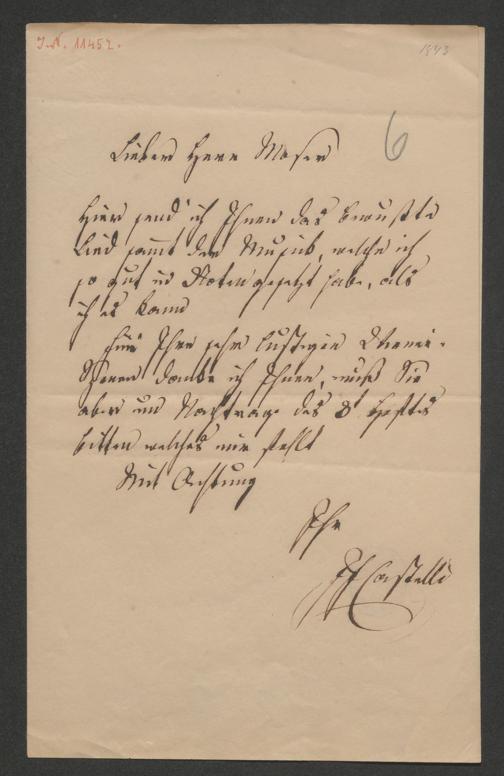 J.N. 11452.
1843
6
Lieber Herr Moser
Hier send' ich Ihnen das bewußte
Lied sammt der Musik, welche ich
so gut in Noten gesetzt habe, als
ich es kann
Für Ihre sehr lustigen
danke ich Ihnen, muß Sie
aber um Nachtrage des 8t Heftes
bitten welches mir fehlt
Mit Achtung
Ihr
Castelli